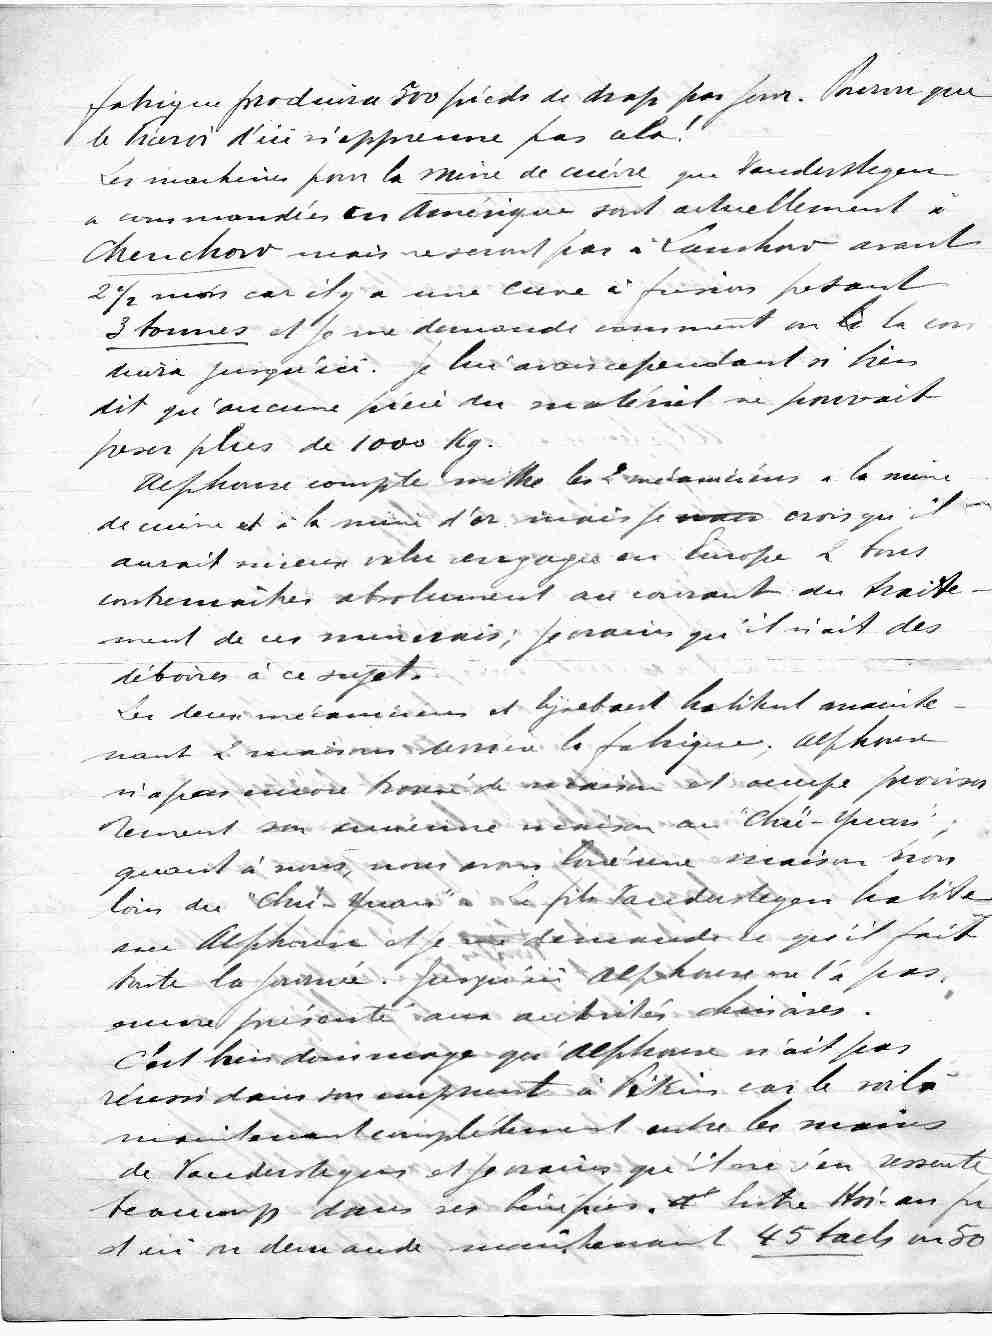 fabrique produira 500 pieds de drap par jour. Pourvu que
le Taotai d'ici n'apprenne pas cela!
Les machines pour la mine de cuivre que Vanderstegen
a commandées en Amérique sont actuellement à
Chenchow mais ne seront pas à Lanchow avant
2 1/2 mois car il y a une cuve à fusion pesant
3 tonnes et je me demande comment on la con
duira jusqu'ici. Je lui avais cependant si bien
dit qu'aucune pièce du matériel ne pouvait
peser plus de 1000 Kg.
Alphonse compte mettre les 2 mécaniciens à la mine
de cuivre et à la mine d'or mais je crois qu'il
aurait mieux valu engager en Europe 2 bons
contremaîtres absolument au courant du traite-
ment de ces minerais; je crains qu'il n'ait des
déboires à ce sujet.
Les deux mécaniciens et Gysebaert habitent mainte-
nant 2 maisons derrière la fabrique. Alphonse
n'a pas encore trouvé de maison et occupe provisoi
rement son ancienne maison au "Chü-Yuan";
quant à nous, nous avons loué une maison non
loin du "Chü-Yuan". Le fils Vanderstegen habite
avec Alphonse et je me demande ce qu'il fait
toute la journée. Jusqu'ici Alphonse ne l'a pas
encore présenté aux autorités chinoises.
C'est bien dommage qu'Alphonse n'ait pas
réussi dans son emprunt à Pékin car le voilà
maintenant complètement entre les mains
de Vanderstegen et je crains qu'il ne s'en ressente
beaucoup dans ses bénéfices. Entre Hsi-an fu
et ici on demande maintenant 45 taels ou 50